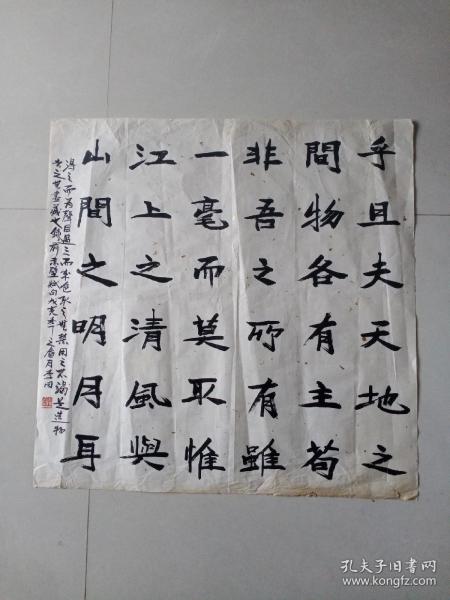 乎且夫天地之
間物各有主苟
非吾之所有雖
一毫而莫取惟
江上之清風與
山間之明月耳
得之而为聲目遇之而成色取之無禁用之不竭是造物
者之無盡藏也錄前赤壁賦句
孔夫子旧书网
www.kongfz.com